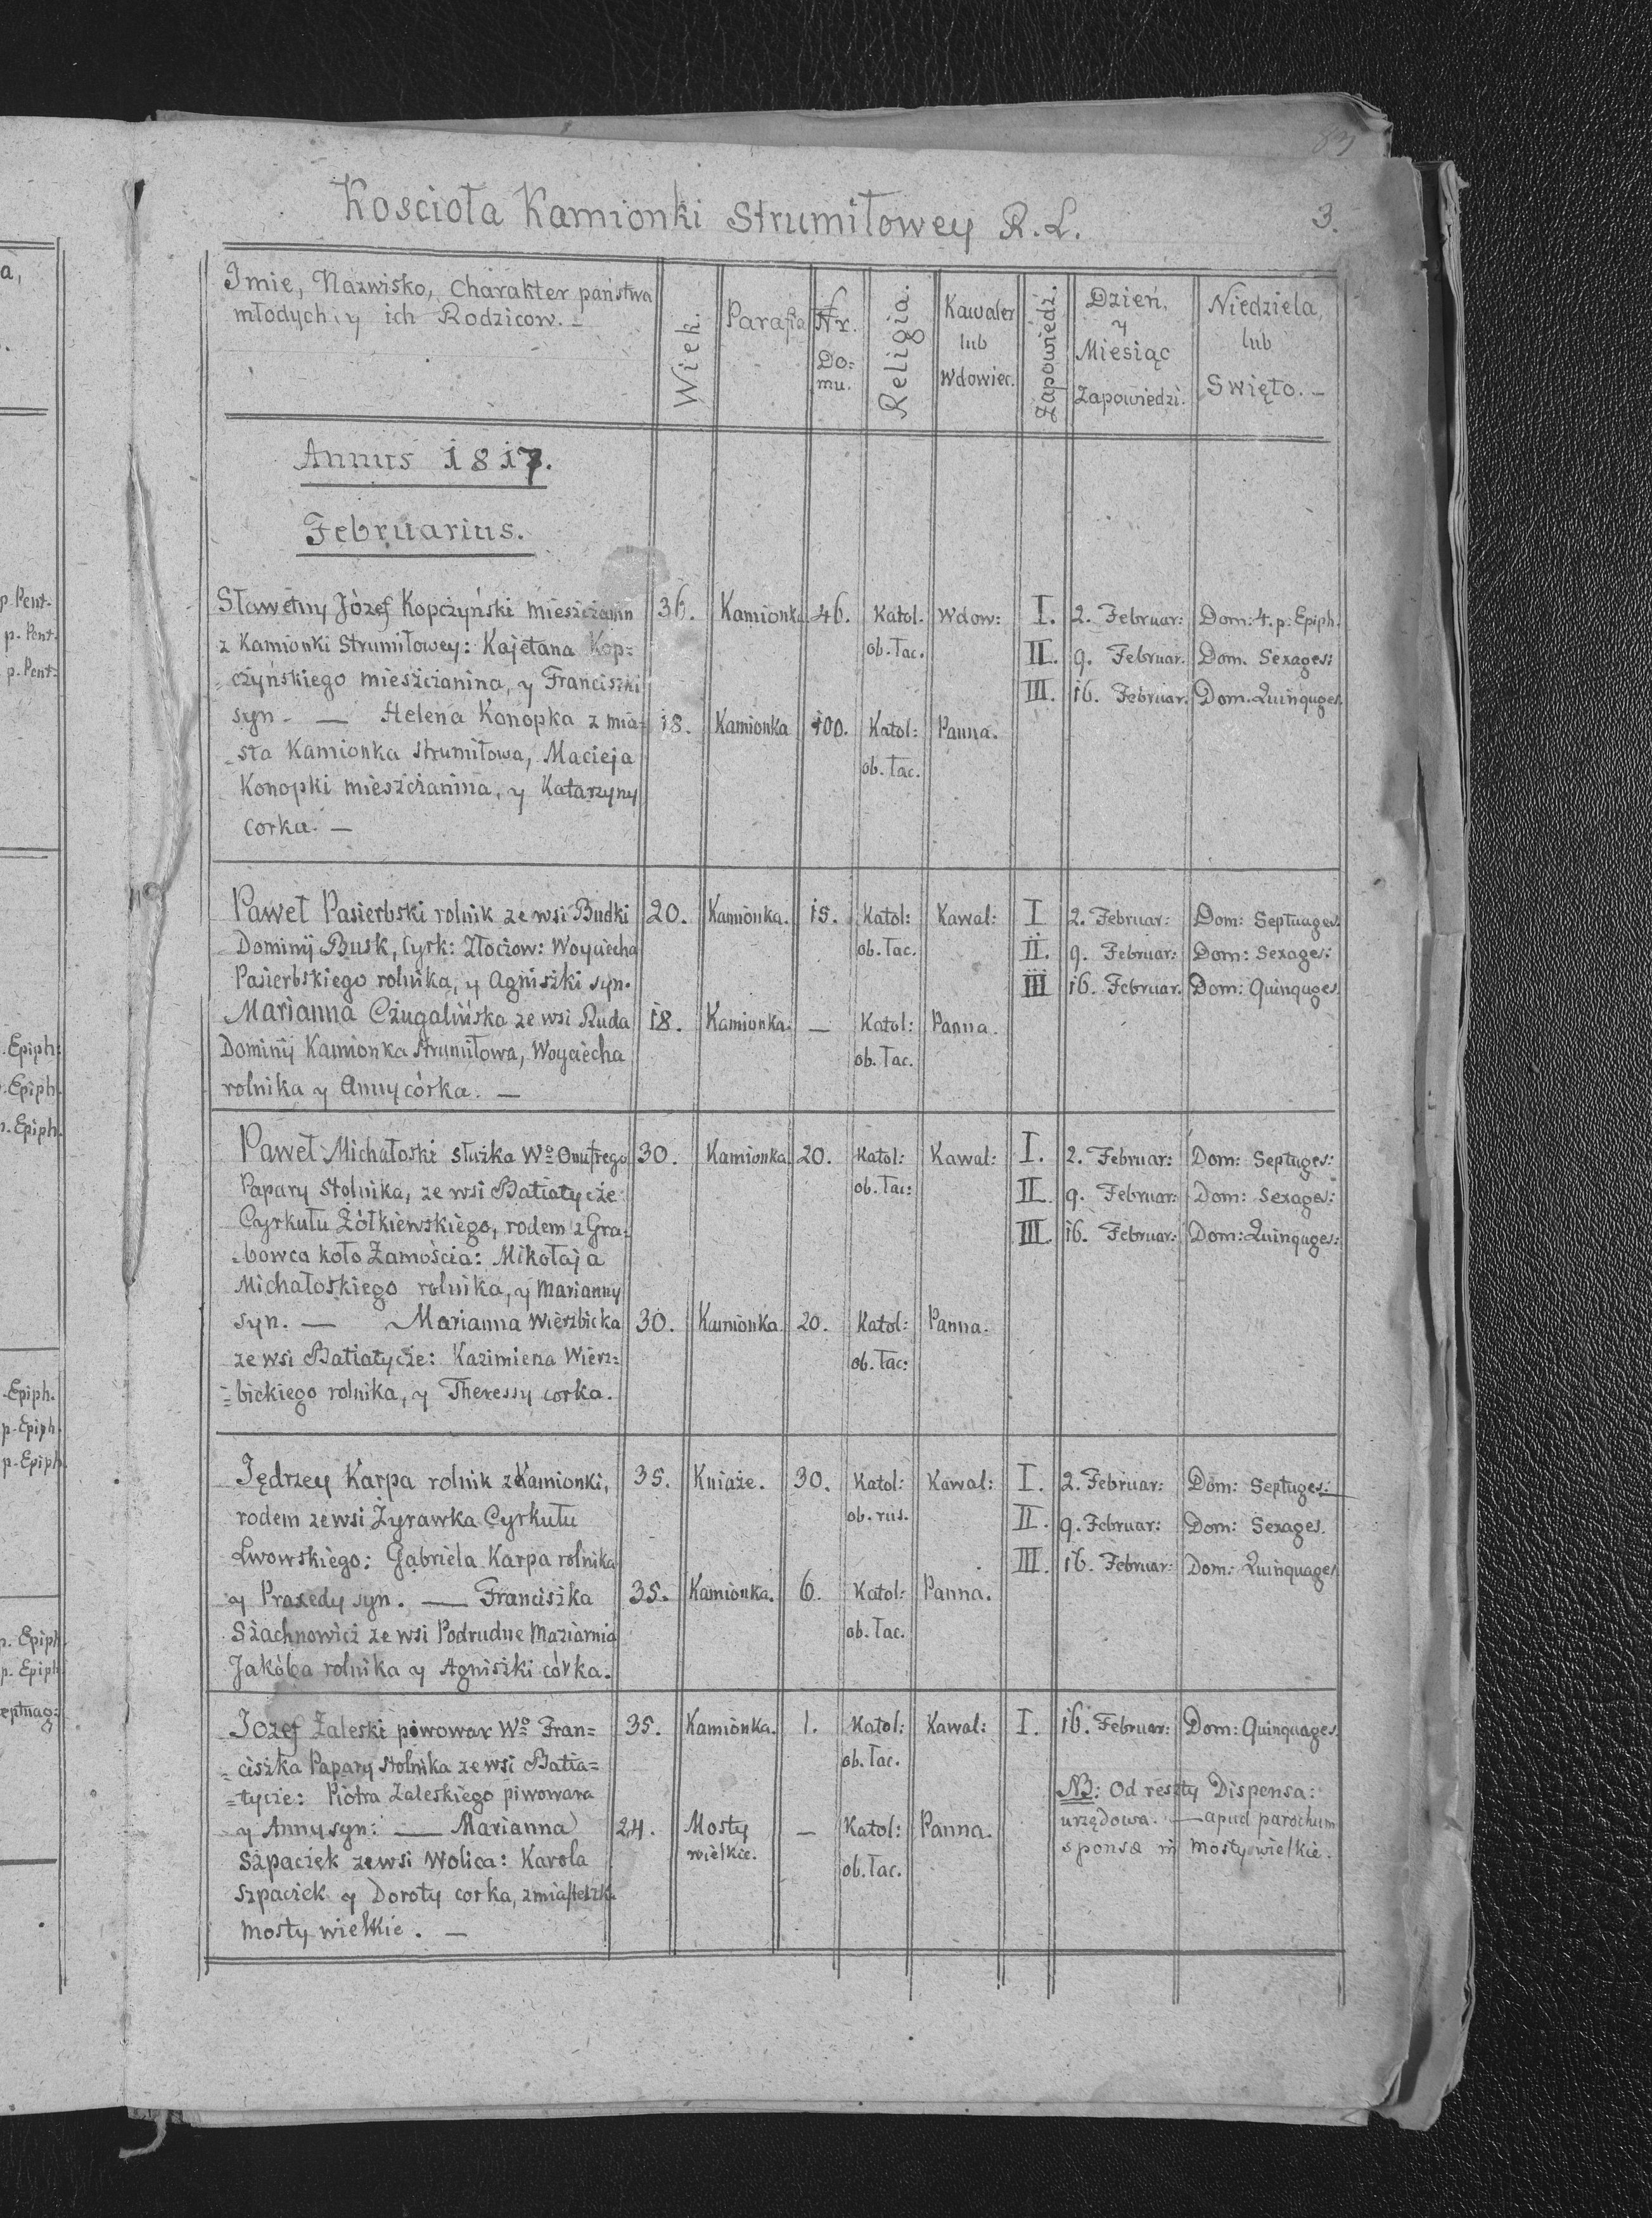 83
Koscioła Kamionki Strumiłowey R.L.
3.
Imie, Nazwisko, Charakter państwa młodych, y ich Rodzicow. –
Wiek.
Parafia
Nr. Do= mu.
Religia.
Kawaler lub Wdowiec.
Zapowiedz.
Dzień, y Miesiąc Zapowiedzi.
Niedziela, lub Swięto. –
Annus 1817.
Februarius.
Sławetny Józef Kopczyński mieszczanin 36. Kamionka 46. Katol. Wdow: I. 2. Februar: Dom: 4. p. Epiph.
z Kamionki Strumiłowey: Kajetana Kop= ob. łac. II. 9. Februar. Dom. Sexages:
czyńskiego mieszczanina, y Franciszki III. 16. Februar. Dom. Quinquges.
syn - — Helena Konopka z mia- 18. Kamionka 100. Katol: Panna.
-sta Kamionka strumiłowa, Macieja ob. łac.
Konopki mieszczanina, y Katarzyny
corka. —
Paweł Pasierbski rolnik ze wsi Budki 20. Kamionka. 15. Katol: Kawal: I 2. Februar: Dom: Septuages.
Dominij Busk, Cyrk: Złoczow: Woyciecha ob. łac. II. 9. Februar: Dom: Sexages:
Pasierbskiego rolnika, y Agniszki syn. III 16. Februar. Dom: Quinquges.
Marianna Czugalińska ze wsi Ruda 18. Kamionka. — Katol: Panna.
Dominij Kamionka Strumiłowa, Woyciecha ob. łac.
rolnika y Anny córka. —
Paweł Michałoski służka Wo Onufrego 30. Kamionka. 20. Katol: Kawal: I. 2. Februar: Dom: Septuges:
Papary Stolnika, ze wsi Batiatycze ob. łac: II. 9. Februar: Dom: Sexages:
Cyrkułu Żółkiewskiego, rodem z Gra- III. 16. Februar: Dom: Quinquges:
-bowca koło Zamościa: Mikołaja
Michałoskiego rolnika, y Marianny
syn. — Marianna Wierzbicka 30. Kamionka. 20. Katol: Panna.
ze wsi Batiatycze: Kazimierza Wierz= ob. łac:
=bickiego rolnika, y Theressy corka.
Jędrzey Karpa rolnik z Kamionki, 35. Kniaże. 30. Katol: Kawal: I. 2. Februar: Dom: Septuges:
rodem ze wsi Żyrawka Cyrkułu ob. rus. II. 9. Februar: Dom: Sexages.
Lwowskiego: Gabriela Karpa rolnika III. 16. Februar: Dom: Quinquages.
y Praxedy syn. — Franciszka 35. Kamionka. 6. Katol: Panna.
Szachnowicz ze wsi Podrudne Maziarnia ob. łac.
Jakóba rolnika y Agniszki córka.
Jozef Zaleski piwowar Wo Fran= 35. Kamionka. 1. Katol: Kawal: I. 16. Februar: Dom: Quinquages.
=ciszka Papary stolnika ze wsi Batia= ob. łac.
=tycze: Piotra Zaleskiego piwowara NB: Od reszty Dispensa:
y Anny syn: — Marianna 24. Mosty wielkie. — Katol: Panna. urzędowa. — apud parochum
Szpaciek ze wsi Wolica: Karola ob. łac. sponsæ in Mosty wielkie.
Szpaciek y Doroty corka, z miasteczk.
Mosty wielkie. —
a,
p. Pent.
p. Pent.
p. Pent:
. Epiph:
. Epiph.
. Epiph.
. Epiph.
p. Epiph.
p. Epiph.
p. Epiph
p. Epiph
eptuag: